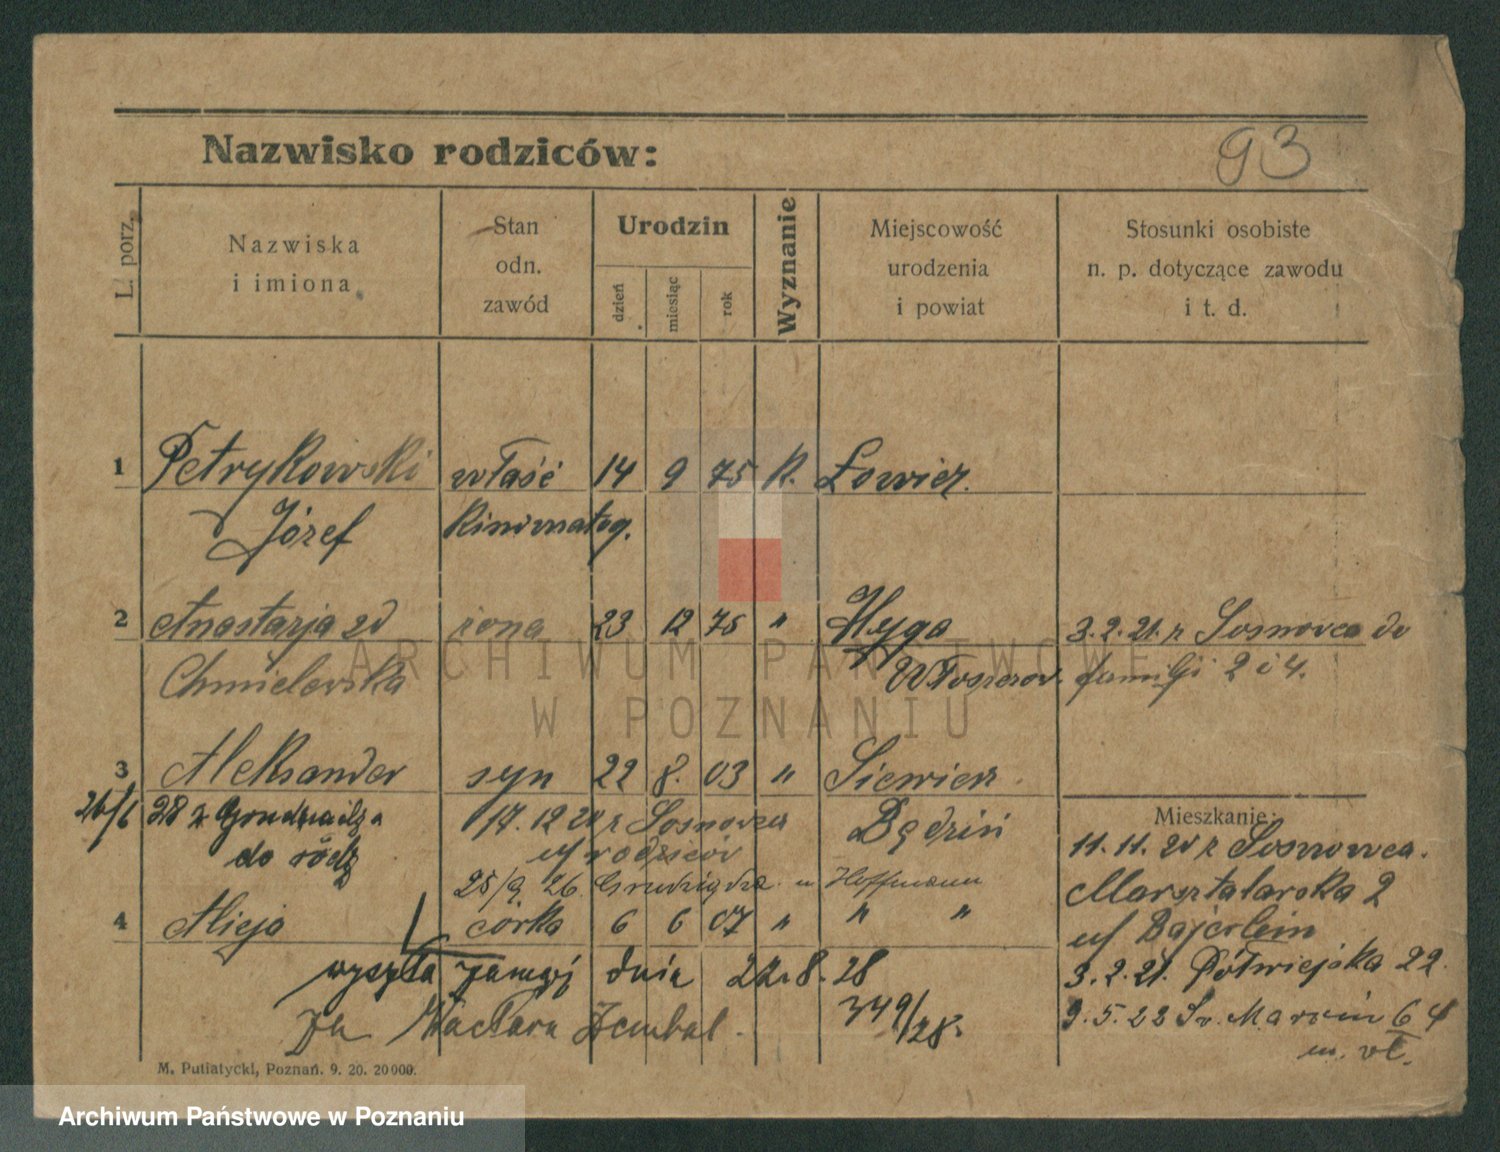 93
Nazwisko rodziców:
L. porz. Nazwiska i imiona Stan odn. zawód Urodzin dzień miesiąc rok Wyznanie Miejscowość urodzenia i powiat Stosunki osobiste n. p. dotyczące zawodu i t. d.
1 Petrykowski właść 14 9 75 k. Łowicz.
Józef kinematog.
2 Anastazja zd żona 23 12 75 " Hyga 3.2.21. z Sosnowca do
Chmielewska Włoszczow. familji 2 i 4.
3 Aleksander syn 22 8. 03 " Siewierz
26/6 28 z Grudziądza 17.12 20 z Sosnowca Będzin
do rodz uf rodziców
25/9 26. Grudziądza u Hoffmann
4 Alicja córka 6 6 07 " " "
wyszła zamąż dnia 22.8.28
za Wacława Zembal. 349/28.
Mieszkanie:
11.11.20 z Sosnowca.
Marsztalarska 2
uf Bajerlein
3.2.21. Półwiejska 22.
9.5.23 Św. Marcin 64
m. wł.
M. Putiatycki, Poznań. 9. 20. 20000.
ARCHIWUM PAŃSTWOWE
W POZNANIU
Archiwum Państwowe w Poznaniu